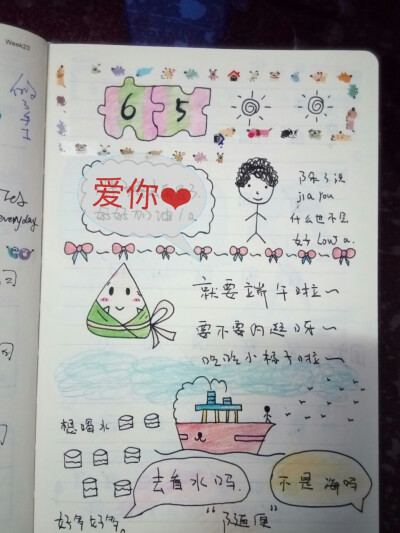 Week23
everyday
6 5
爱你❤
好好加油/a.
除了说
jia you
什么也不是
好low a.
就要端午啦~
要不要月起呀~
吃吃小粽子啦~
想喝水
去看水吗.
不是海吗
好多好多。